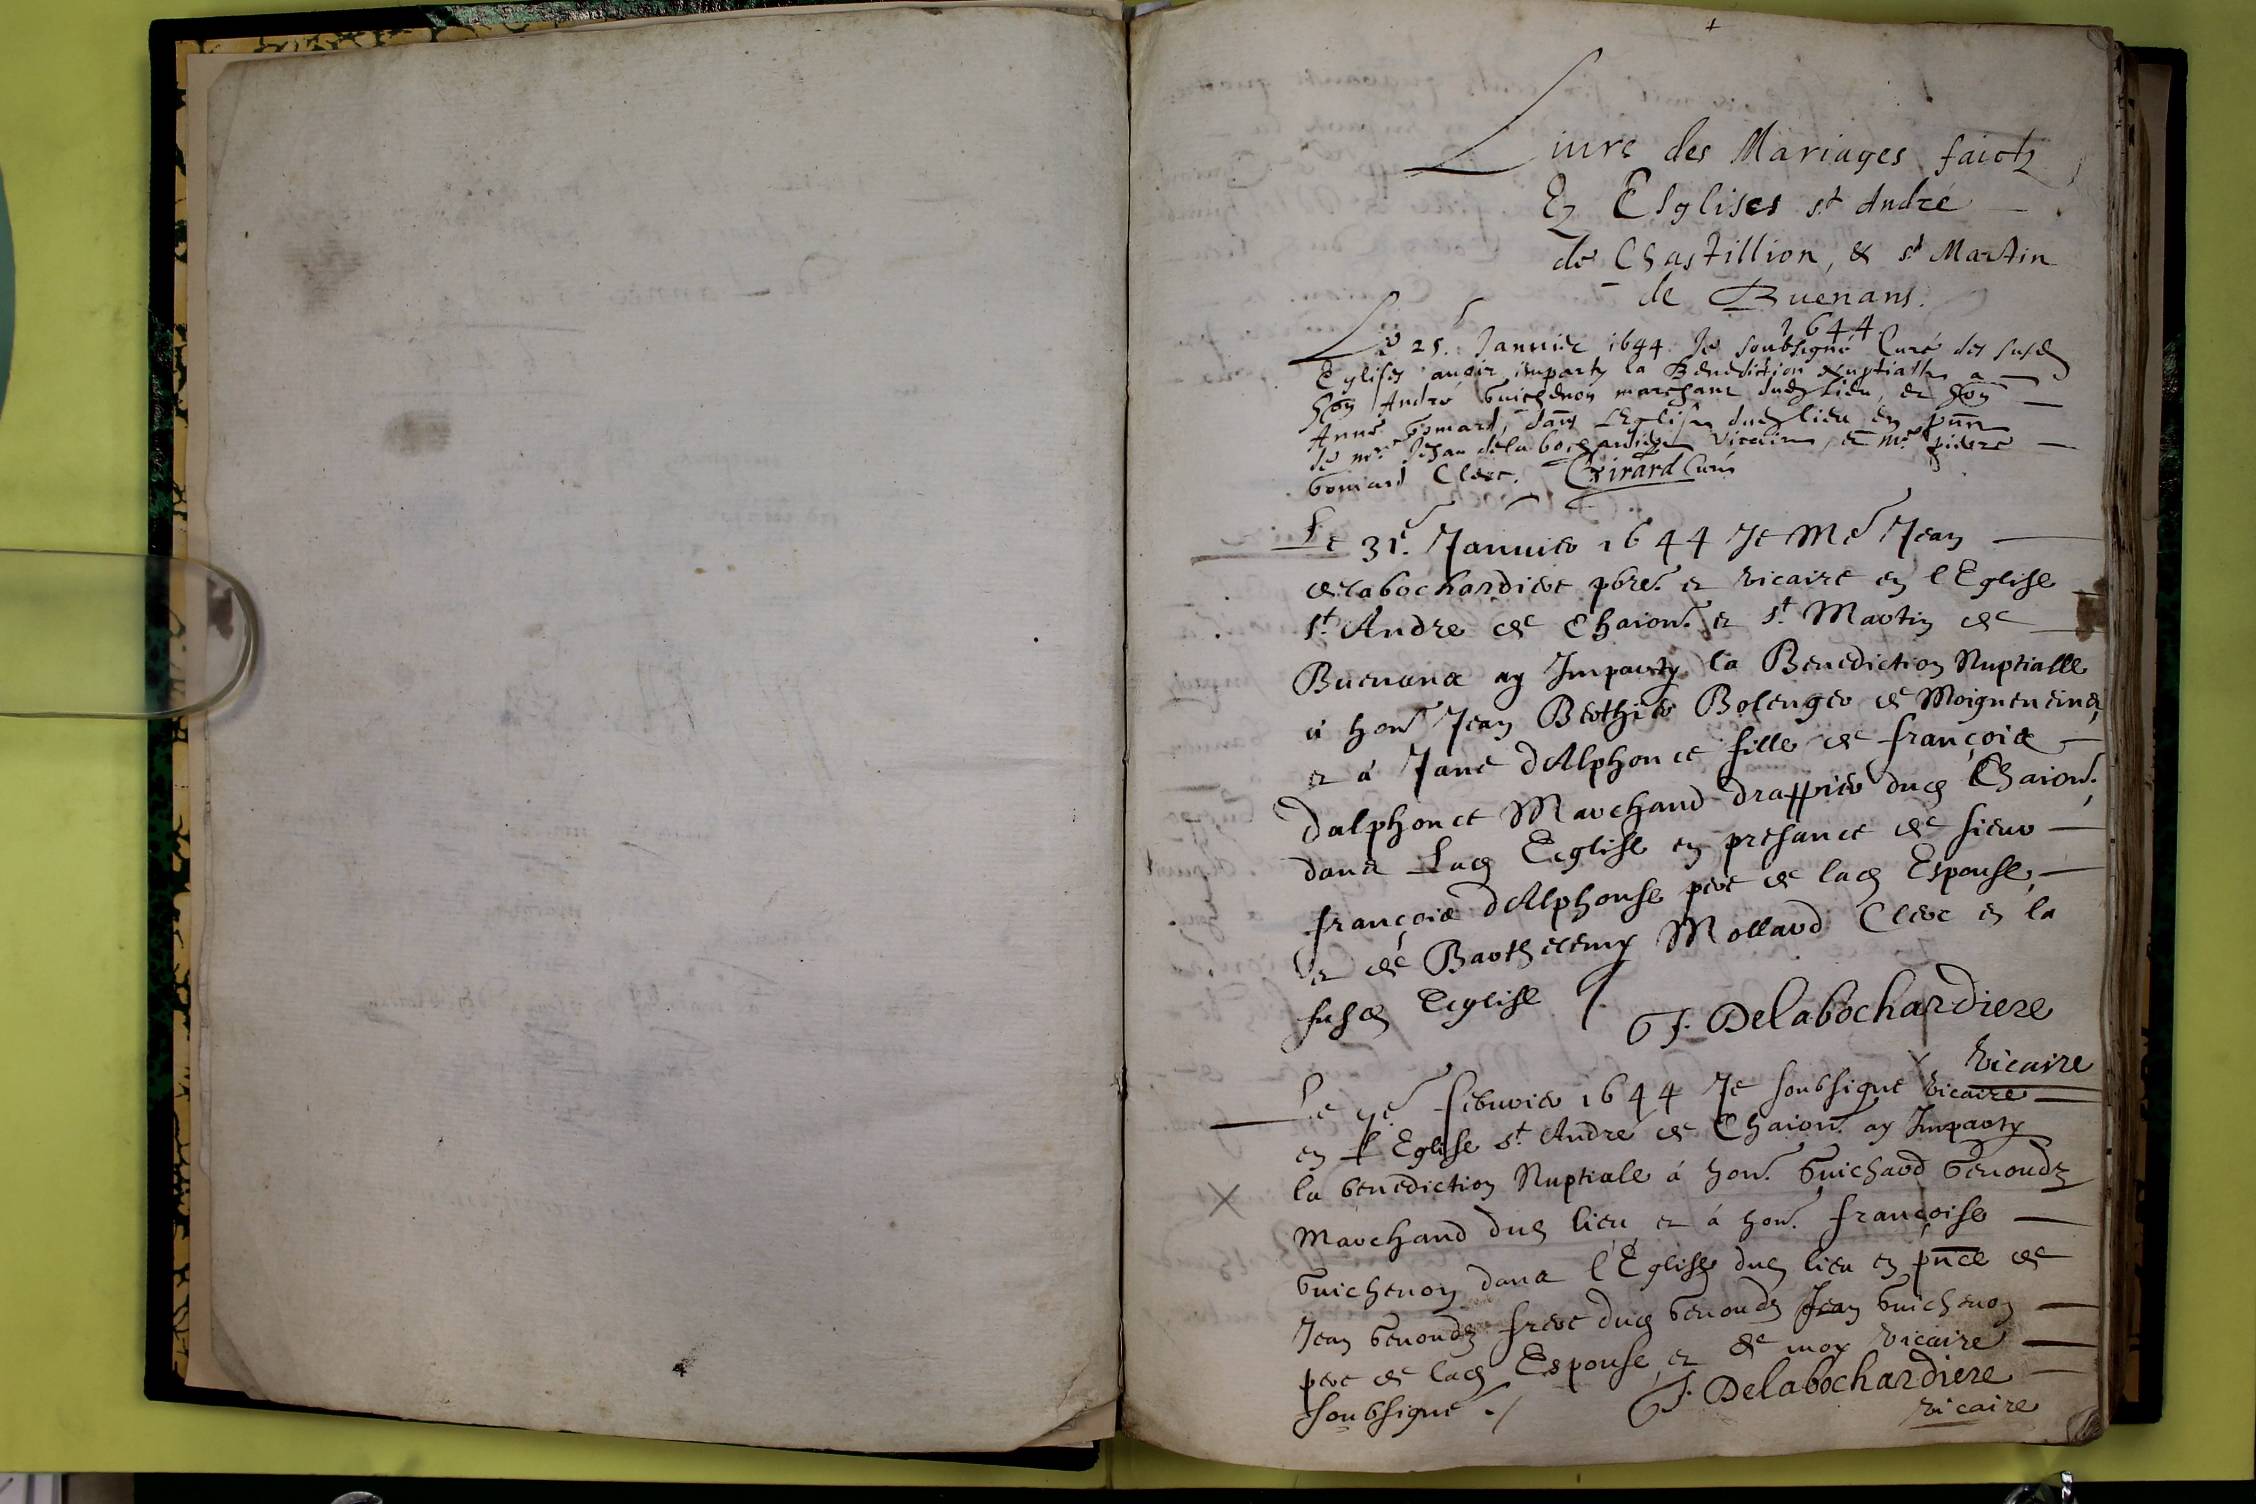 Liure des Mariages faictz
Ez Esglises st André
de Chastillion, & st Martin
de Buenans.
1644.
Le 25. Januier 1644. Je soubsigné Curé des susd
Eglises auoir imparty la Benediction Nuptialle a
hon André Guichenon marchant dud lieu, et hon
Anne Gomard, dans L'Eglise dud lieu en pnce
de mre Jehan delabochardiere Vicaire, et mre pierre
Gomard Clerc. Girard Curé
Le 31e. Januier 1644 Je Me Jean
delabochardiere pbre. et vicaire en l'Eglise
st. Andre de Chaion. et st. Martin de
Buenans ay Imparty la Benediction Nuptialle
à hon. Jean Berthier Bolenger de Moigneneins
et à Jane dAlphonce fille de françois
dalphonce Marchand drappier dud Chaion.
dans Lad Eeglise en presance de sieur
françois dAlphonse pere de lad Espouse,
et de Barthelemy Mollard Clerc en la
susd Eeglise /.
J. Delabochardiere
vicaire
Le 7e. feburier 1644 Je soubsigne vicaire
en l'Eglise st. André de Chaion. ay Imparty
la benediction Nuptiale à hon. Guichard Genoudz
Marchand dud lieu et à hon. françoise
Guichenon dans l'Eglise dud lieu en pnce de
Jean Genoudz frere dud Genoudz Jean Guichenon
pere de lad Espouse, et de moy vicaire
soubsigne ./ J. Delabochardiere
vicaire